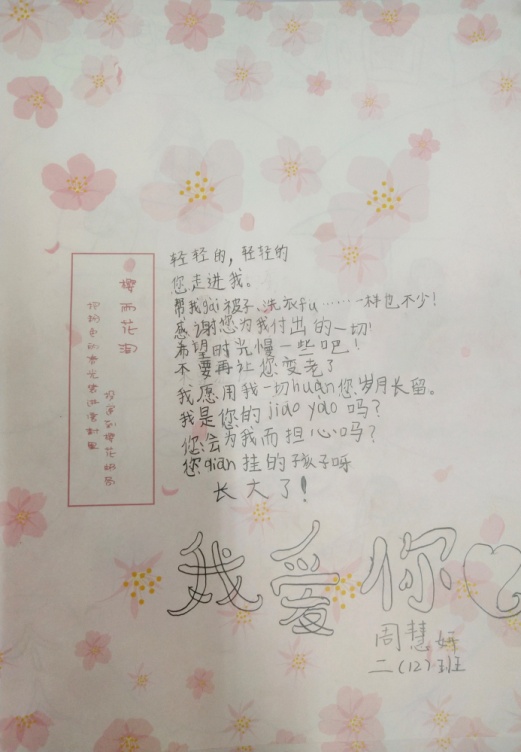 轻轻的，轻轻的
您走进我。
帮我gai被子、洗衣fu……一样也不少！
感谢您为我付出的一切！
希望时光慢一些吧！
不要再让您变老了
我愿用我一切huàn您岁月长留。
我是您的jiāo yào吗？
您会为我而担心吗？
您qiān挂的孩子呀
长大了！
我爱你
周慧妍
二（12）班
樱雨花海
把粉色的春光装进信封里
投递到樱花邮局